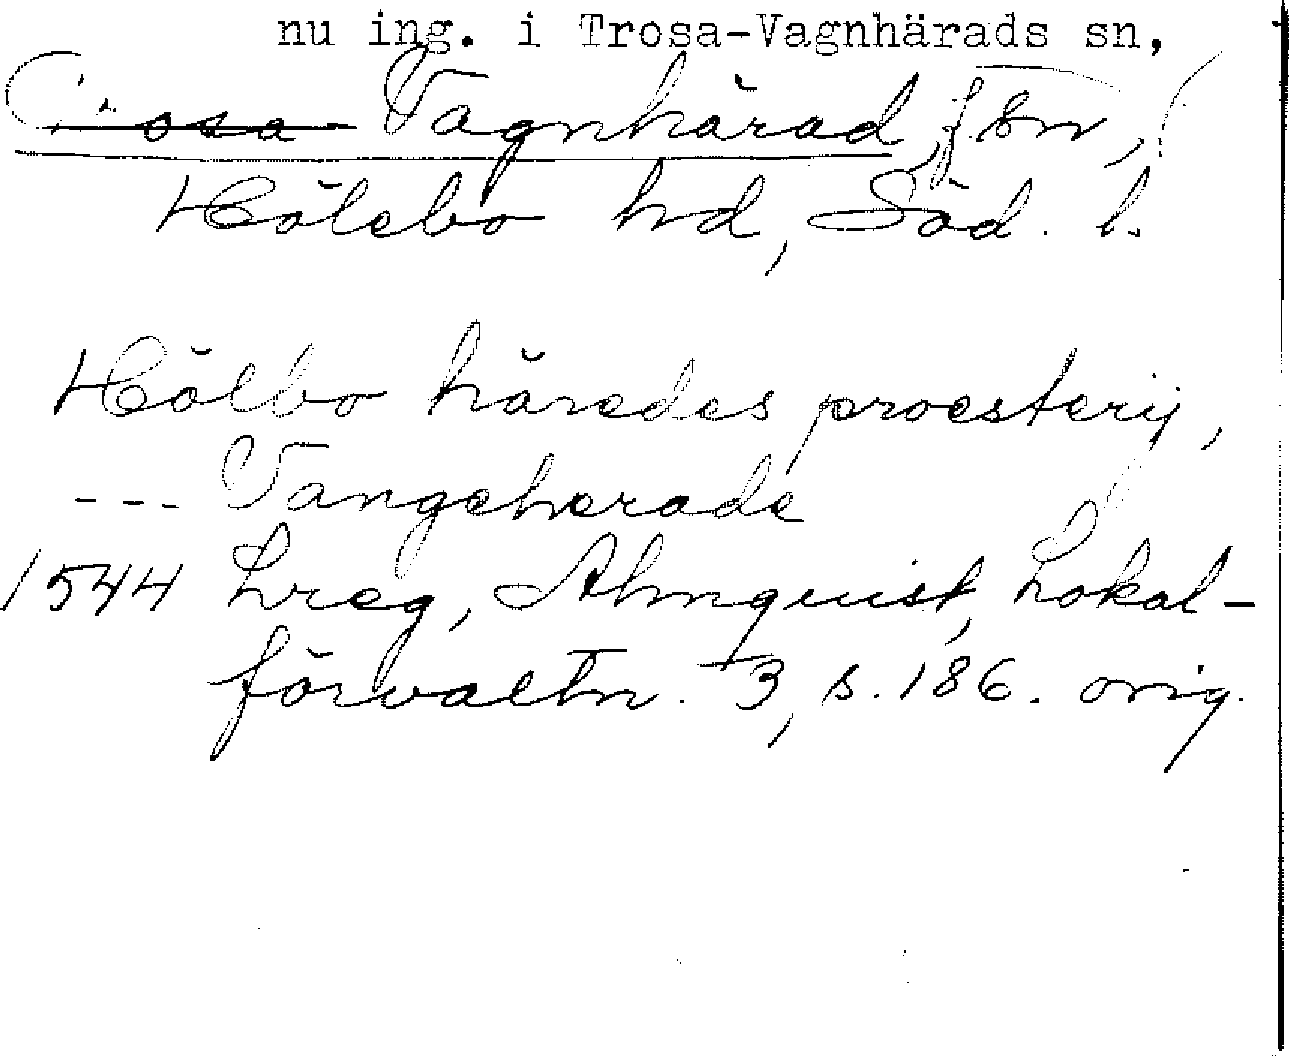 nu ing. i Trosa-Vagnhärads sn,
Trosa- Vagnhärad, f. sn,
Hölebo hd, Söd. l.
Hölbo häredes proesterij,
--- Vangeherade
1544 Lreg, Almquist, Lokal-
förvaltn. 3, s. 186. orig.